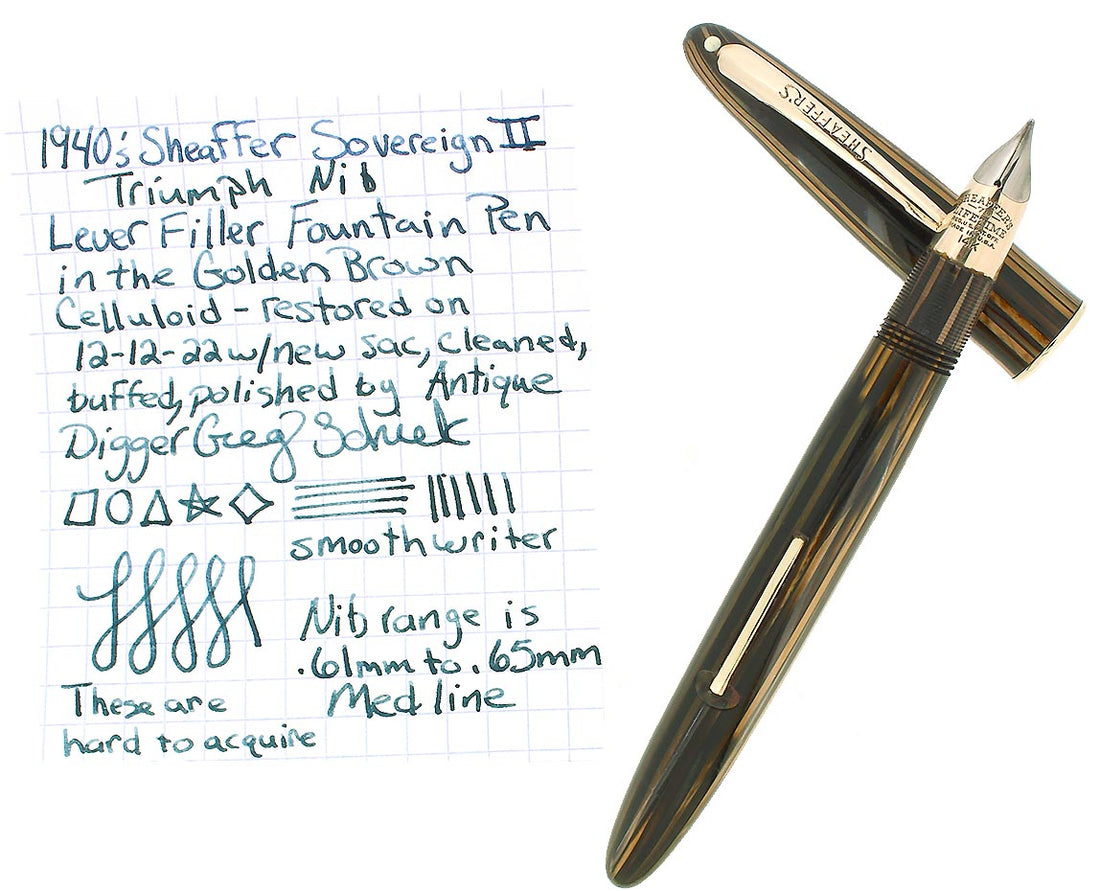 1940's Sheaffer Sovereign II
Triumph Nib
Lever Filler Fountain Pen
in the Golden Brown
Celluloid - restored on
12-12-22 w/new sac, cleaned,
buffed, polished by Antique
Digger Greg
smooth writer
Nib range is
.61mm to .65mm
Med line
These are
hard to acquire
SHEAFFER'S
SHEAFFER'S
LIFETIME
14K